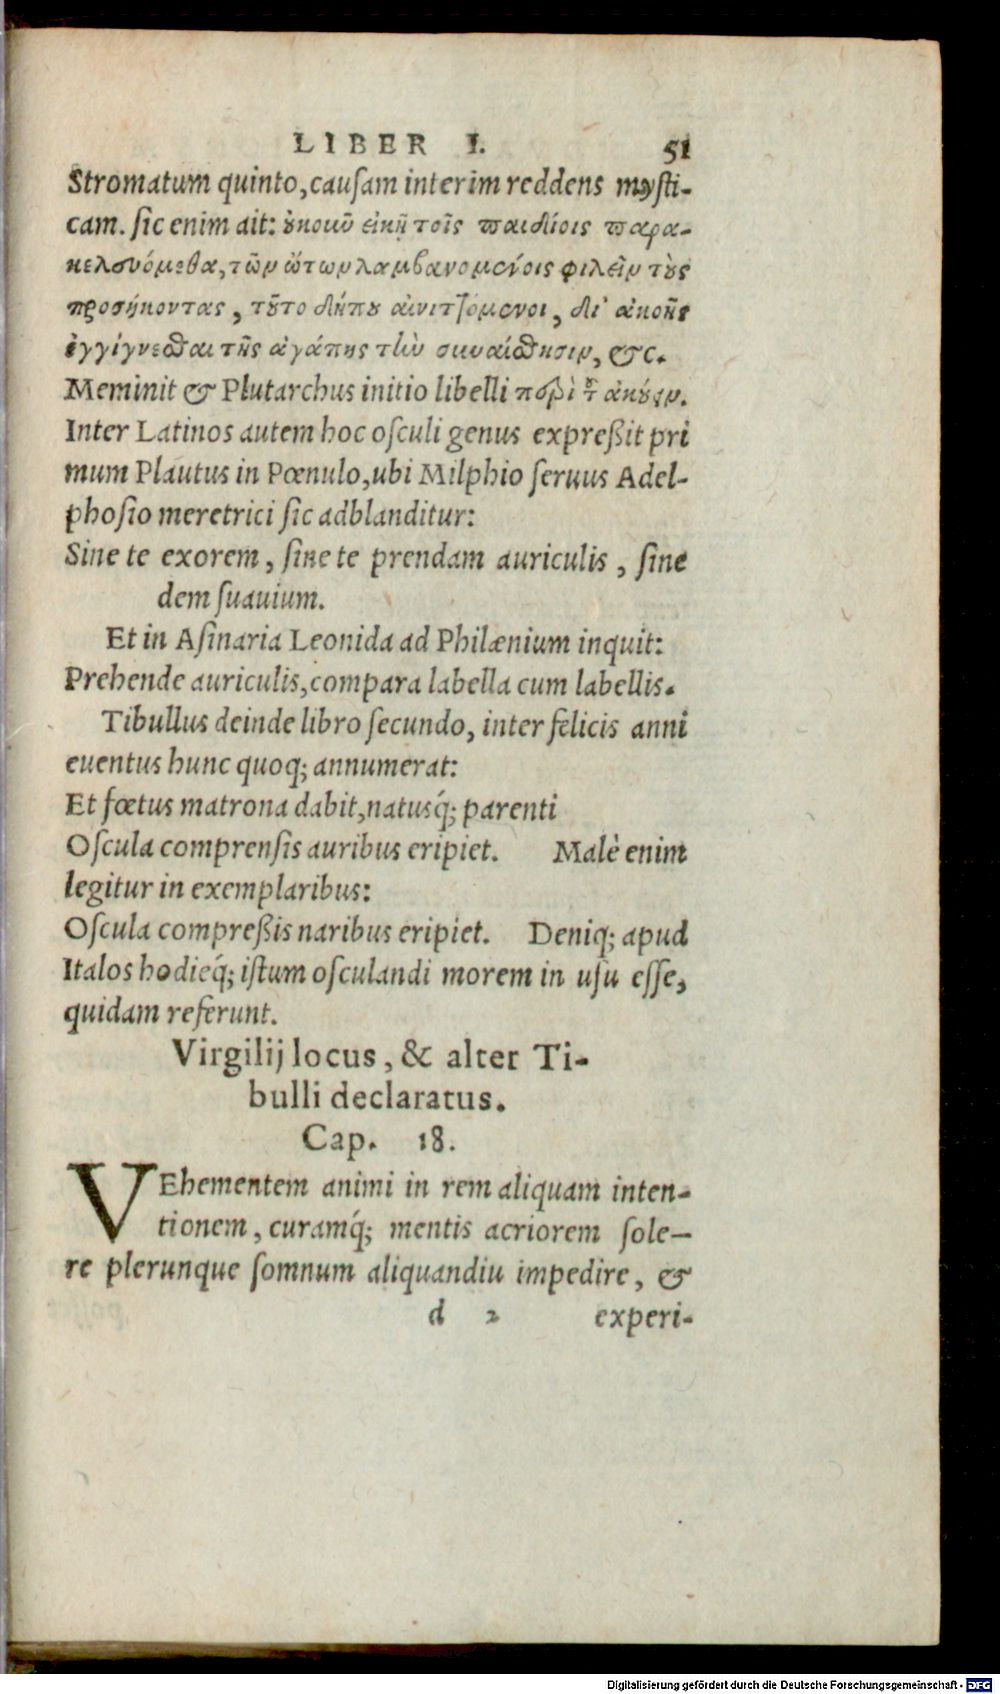 LIBER I. 51
Stromatum quinto, cauſam interim reddens myſti-
cam. ſic enim ait: ȣ̓κοιῦ εἰκῇ τοῖς παιδίοις παρα-
κελευόμεθα, τῶν ὤτων λαμβανομένοις φιλεῖν τὺς
προσήκοντας, τȣ͂το δήπȣ αἰνιττόμενοι, δι' ἀκοῆς
ἐγγίγνεσθαι τῆς ἀγάπης τὴν συναίσθησιν, &c.
Meminit & Plutarchus initio libelli περὶ τ͂ ἀκȣ́ειν.
Inter Latinos autem hoc oſculi genus expreßit pri
mum Plautus in Pœnulo, ubi Milphio ſeruus Adel-
phoſio meretrici ſic adblanditur:
Sine te exorem, ſine te prendam auriculis, ſine
dem ſuauium.
Et in Aſinaria Leonida ad Philænium inquit:
Prehende auriculis, compara labella cum labellis.
Tibullus deinde libro ſecundo, inter felicis anni
euentus hunc quoq; annumerat:
Et fœtus matrona dabit, natusq́; parenti
Oſcula comprenſis auribus eripiet. Malè enim
legitur in exemplaribus:
Oſcula compreßis naribus eripiet. Deniq; apud
Italos hodieq́; iſtum oſculandi morem in uſu eſſe,
quidam referunt.
Virgilij locus, & alter Ti-
bulli declaratus.
Cap. 18.
VEhementem animi in rem aliquam inten-
tionem, curamq́; mentis acriorem ſole-
re plerunque ſomnum aliquandiu impedire, &
d 2 experi-
Digitalisierung gefördert durch die Deutsche Forschungsgemeinschaft - DFG